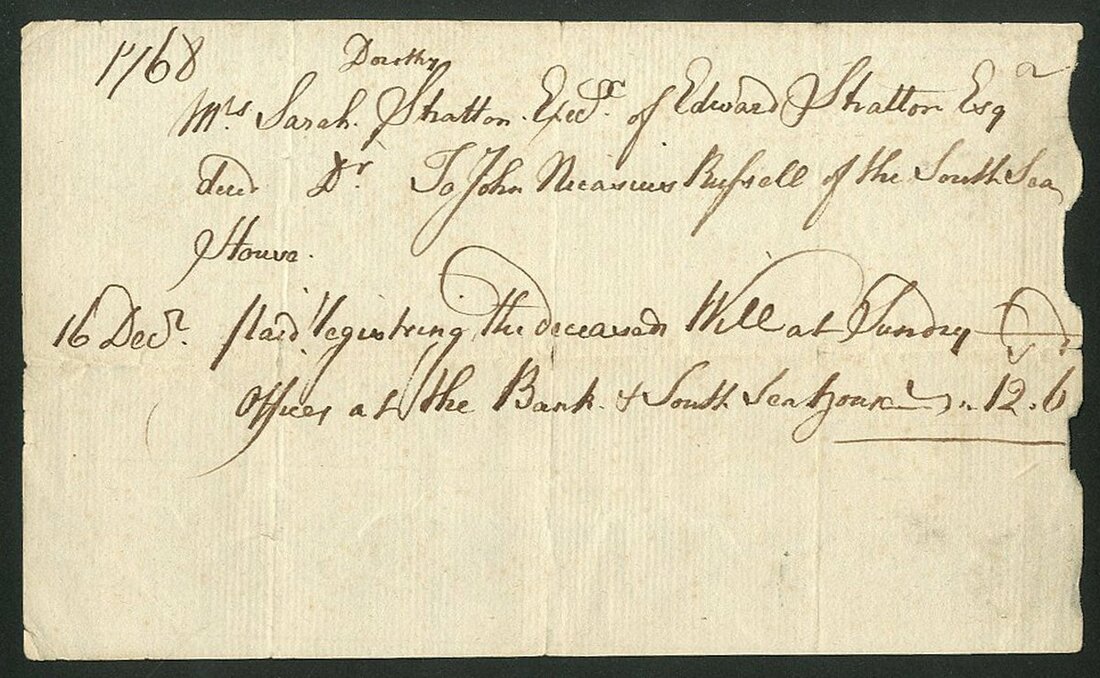 1768
Dorothy
Mrs Sarah Stratton Execx. of Edward Stratton Esqr
decd Dr. To John Nicasius Russell of the South Sea
House.
16 Decr. paid registring the deceaseds Will at Sundry
Offices at the Bank & South Sea house 12.6